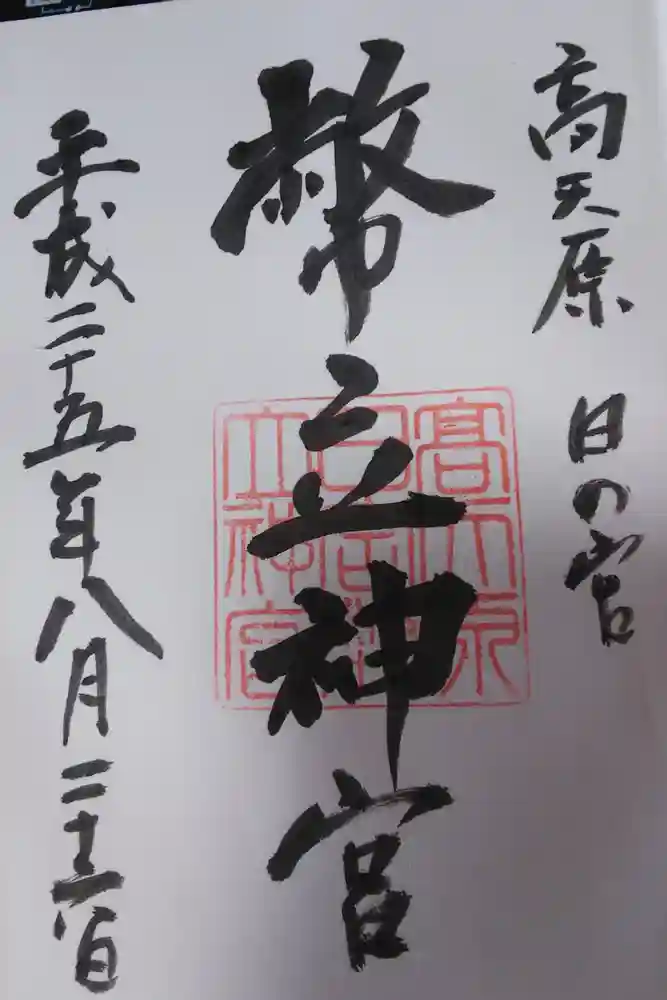 高天原 日の宮
幣立神宮
高天原
日宮幣
立神宮
平成二十五年八月二十六日